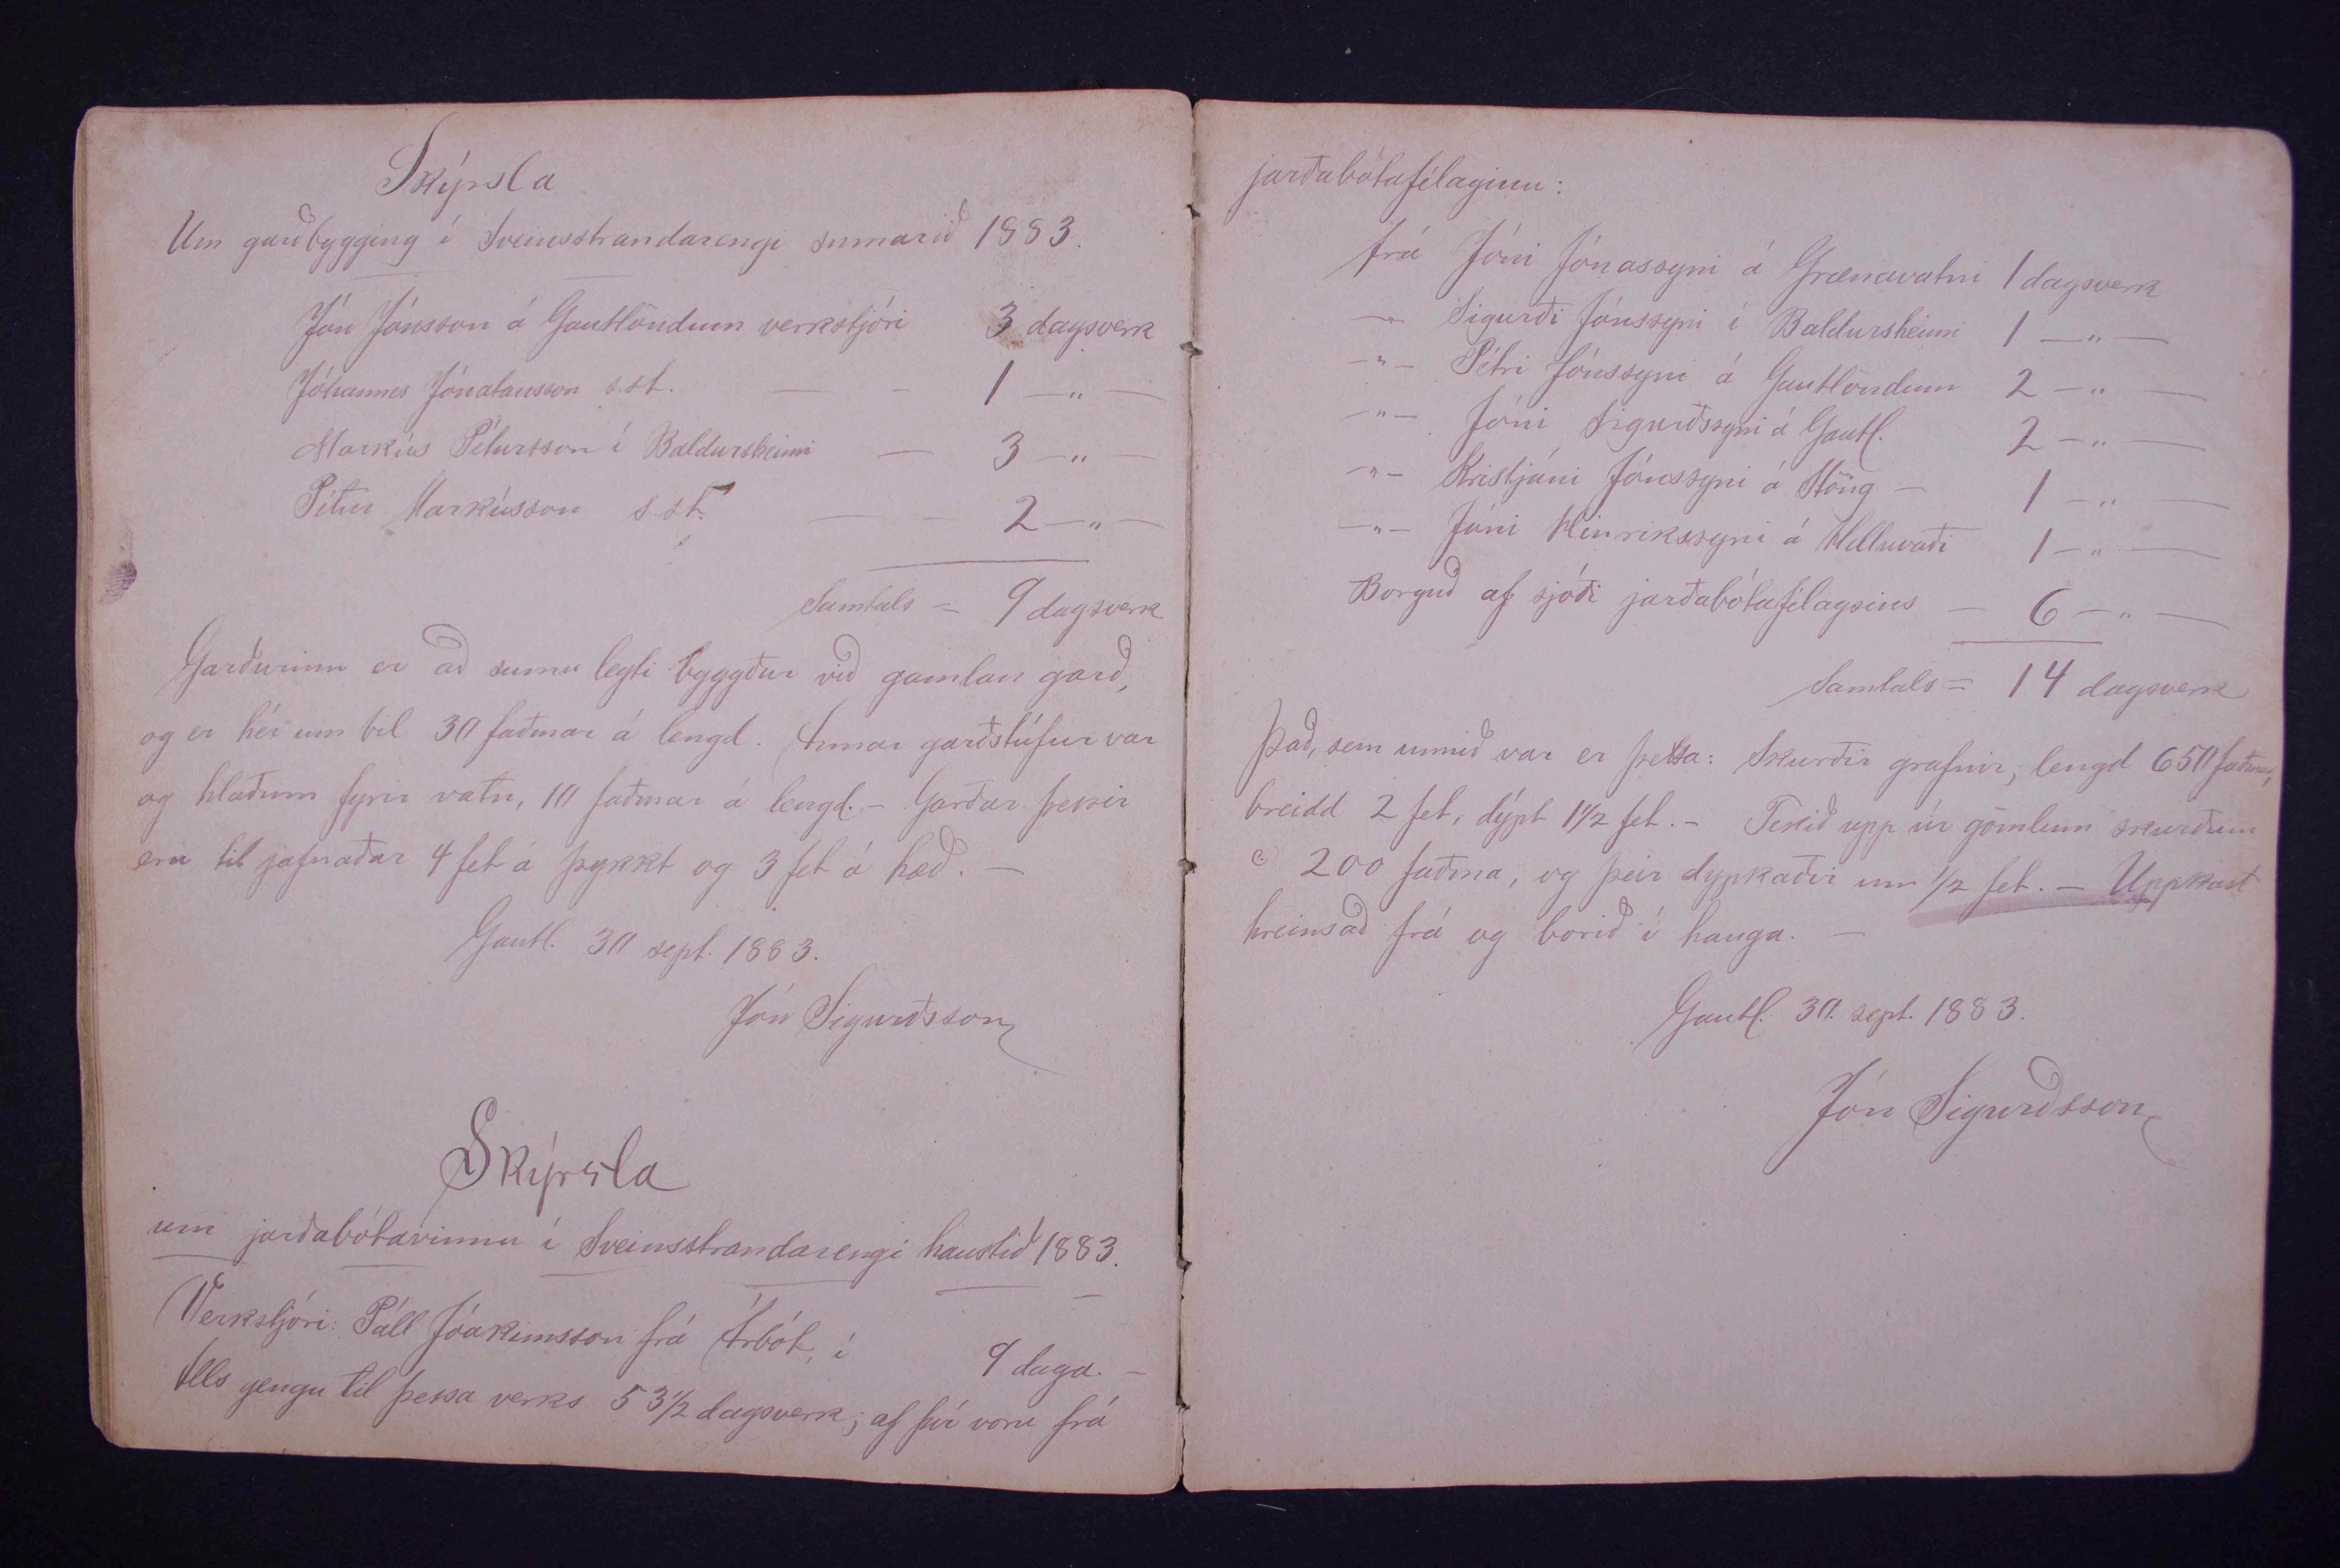 Skýrsla
Um garðbygging í Sveinsstrandarengi sumarið 1883.
Jón Jónsson á Gautlöndum verkstjóri 3 dagsverk
Jóhannes Jónatansson s.st. — - 1 —"—
Markús Pétursson í Baldursheimi — 3 —"—
Pétur Markússon s.st. — - 2 —"—
Samtals = 9 dagsverk
Garðurinn er að sumu leyti byggður við gamlan garð,
og er hér um bil 30 faðmar á lengd. Annar garðstúfur var
og hlaðinn fyrir vatn, 10 faðmar á lengd. - Garðar þessir
eru til jafnaðar 4 fet á þykkt og 3 fet á hæð. —
Gautl. 30 sept. 1883.
Jón Sigurðsson
Skýrsla
um jarðabótavinnu í Sveinsstrandarengi haustið 1883.
Verkstjóri: Páll Jóakimsson frá Árbót, í 9 daga. —
Alls gengu til þessa verks 53 1/2 dagsverk; af því voru frá
jarðabótafélaginu:
frá Jóni Jónassyni á Grænavatni 1 dagsverk
—"— Sigurði Jónssyni í Baldursheimi 1 —"—
—"— Pétri Jónssyni á Gautlöndum 2 —"—
—"— Jóni Sigurðssyni á Gautl. 2 —"—
—"— Kristjáni Jónssyni á Stöng — 1 —"—
—"— Jóni Hinrikssyni á Helluvaði 1 —"—
Borguð af sjóði jarðabótafélagsins — 6 —"—
Samtals = 14 dagsverk
Það, sem unnið var er þetta: Skurðir grafnir; lengd 650 faðmar,
breidd 2 fet, dýpt 1 1/2 fet. - Tekið upp úr gömlum skurðum
200 faðma, og þeir dypkaðir um 1/2 fet. — Uppkast
hreinsað frá og borið í hauga. —
Gautl. 30. sept. 1883.
Jón Sigurðsson